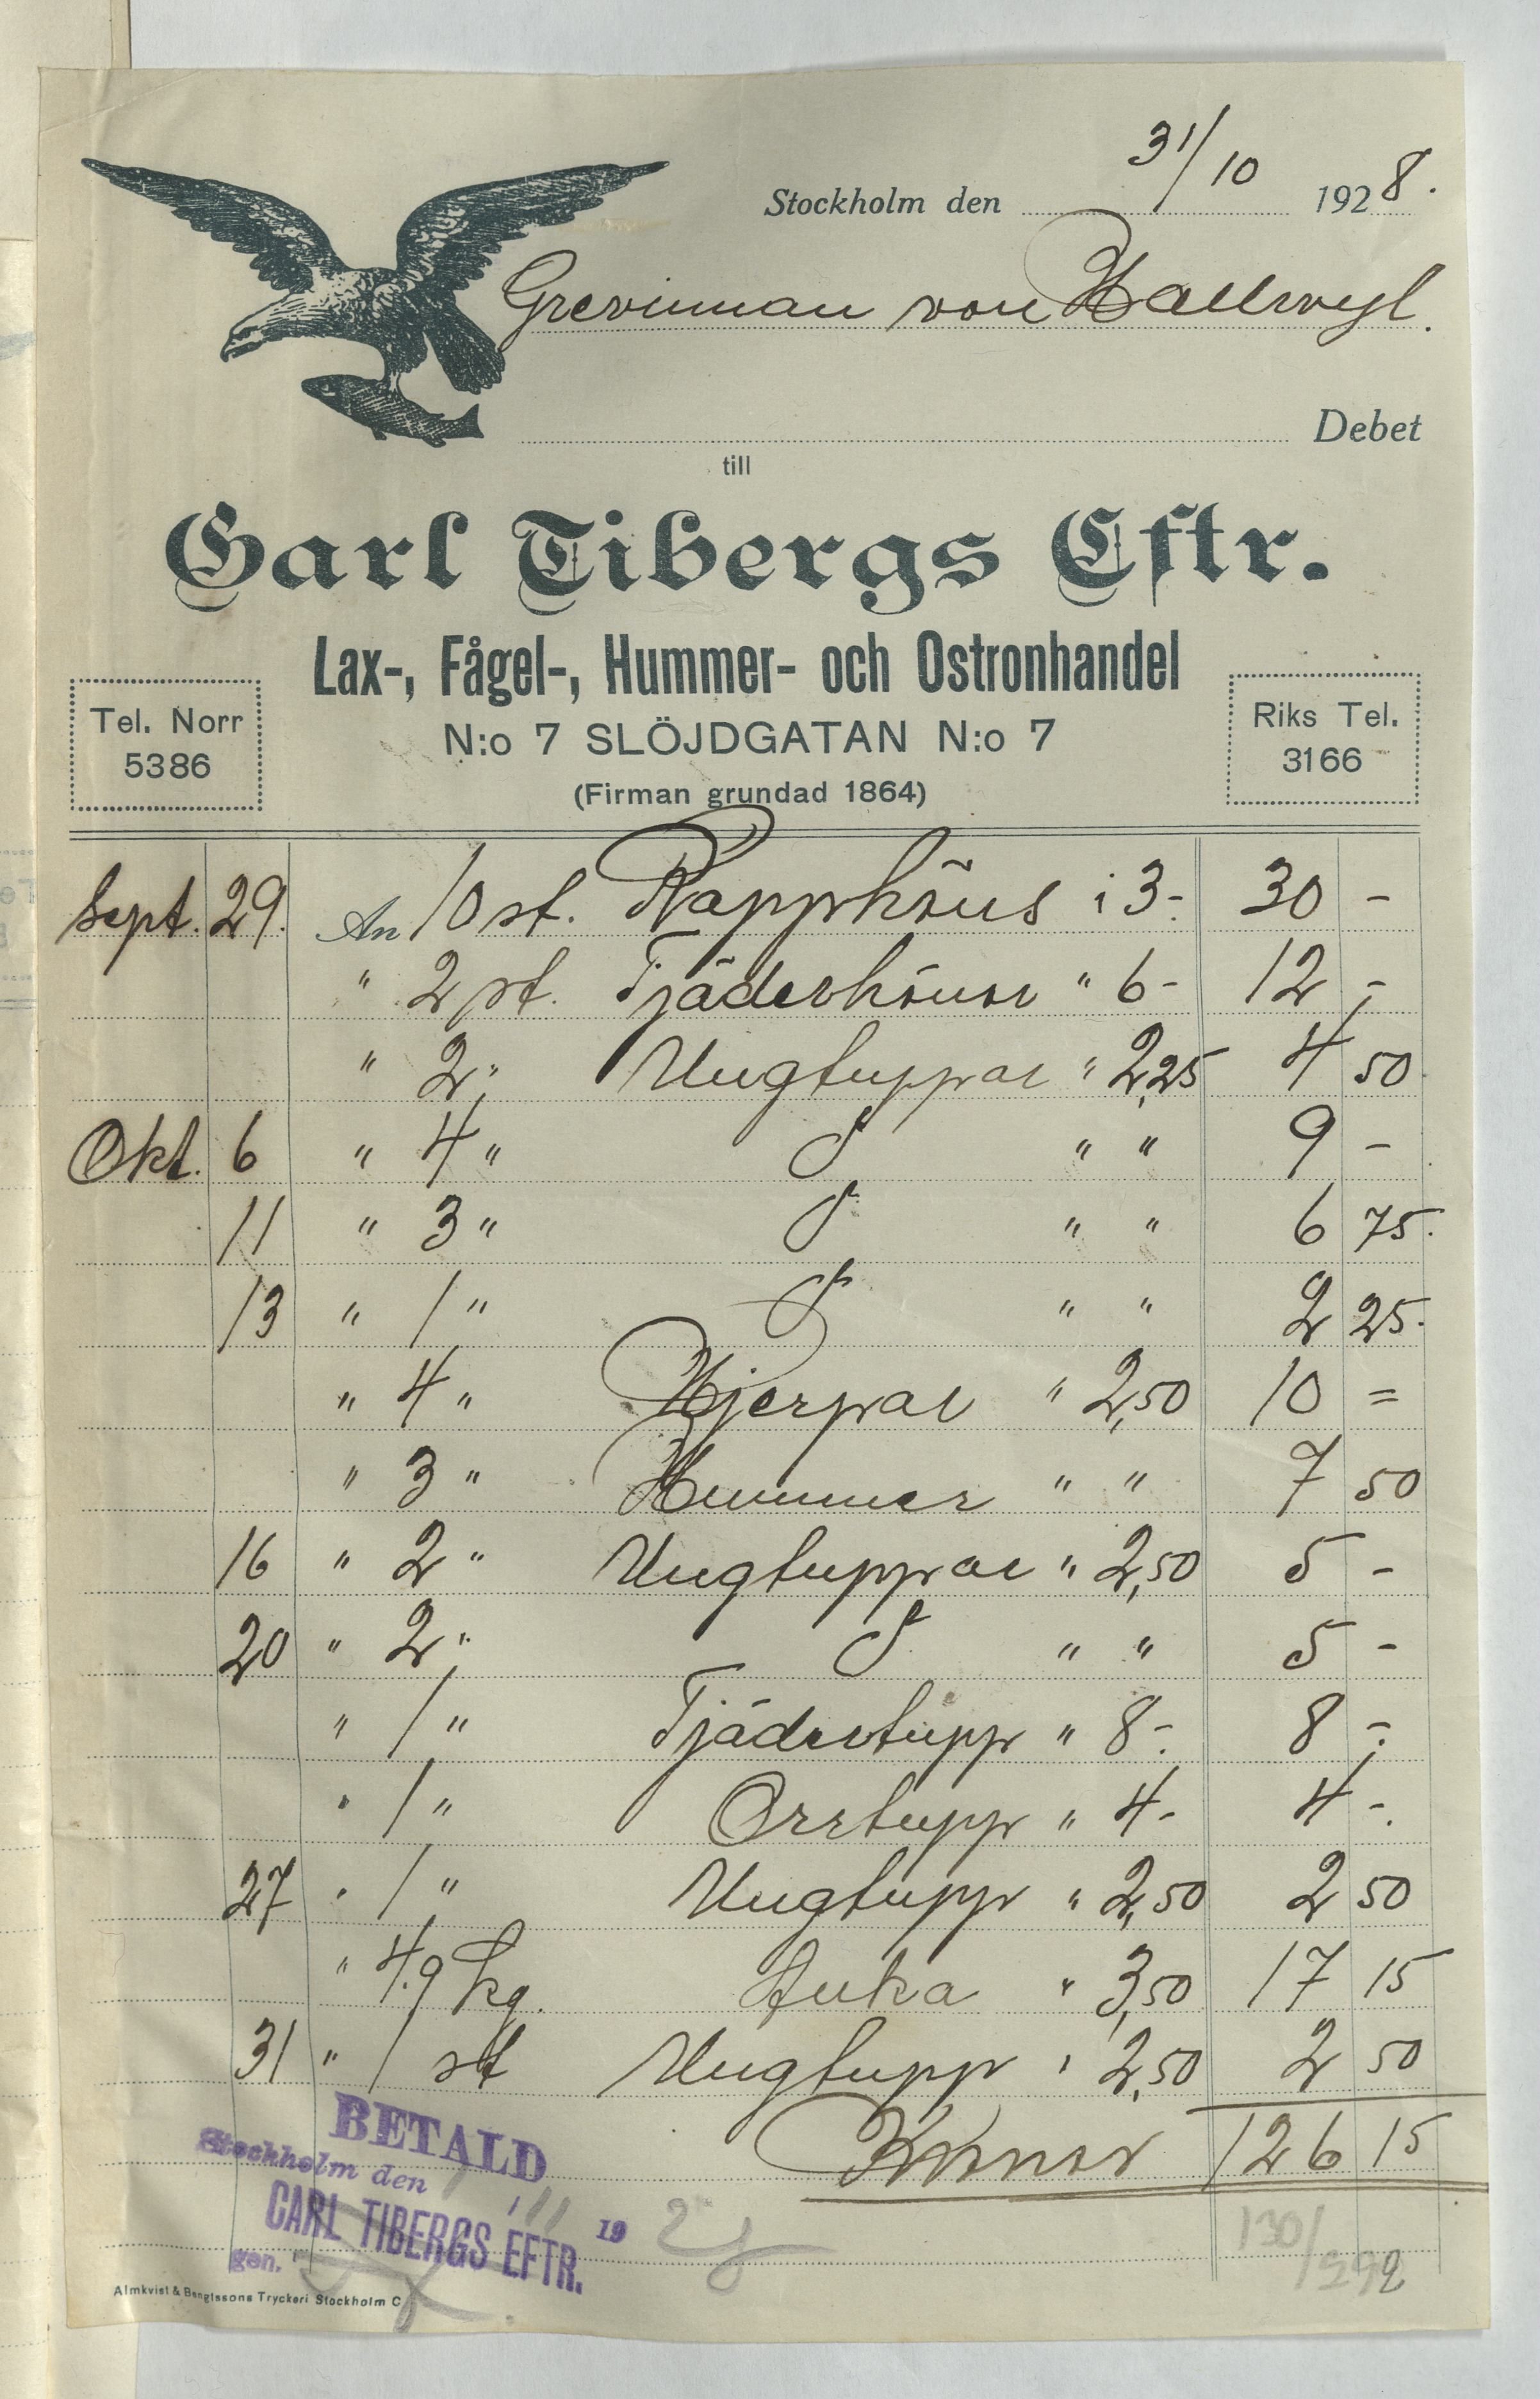 Stockholm den 31/10 1928.
Grevinnan von Hallwyl.
Debet
till
Carl Tibergs Eftr.
Lax-, Fågel-, Hummer- och Ostronhandel
Tel. Norr 5386
N:o 7 SLÖJDGATAN N:o 7
Riks Tel. 3166
(Firman grundad 1864)
Sept. 29. An 10 st. Rapphöns i 3- 30 -
" 2 st. Tjäderhönor " 6- 12 -
" 2 " Ungtuppar " 2,25 4 50
Okt. 6 " 4 " D " " 9 -
11 " 3 " D " " 6 75.
13 " 1 " D " " 2 25.
" 4 " Hjerpar " 2,50 10 =
" 3 " Hummer " " 7 50
16 " 2 " Ungtuppar " 2,50 5 -
20 " 2 " D " " 5 -
" 1 " Tjädertupp " 8- 8 -
" 1 " Orrtupp " 4- 4 -
27 " 1 " Ungtupp " 2,50 2 50
" 4.9 kg. Anka " 3,50 17 15
31 " 1 st Ungtupp " 2,50 2 50
Kronor 126 15
BETALD
Stockholm den 19
CARL TIBERGS EFTR.
gen.
130/
Almkvist & Bengtssons Tryckeri Stockholm C